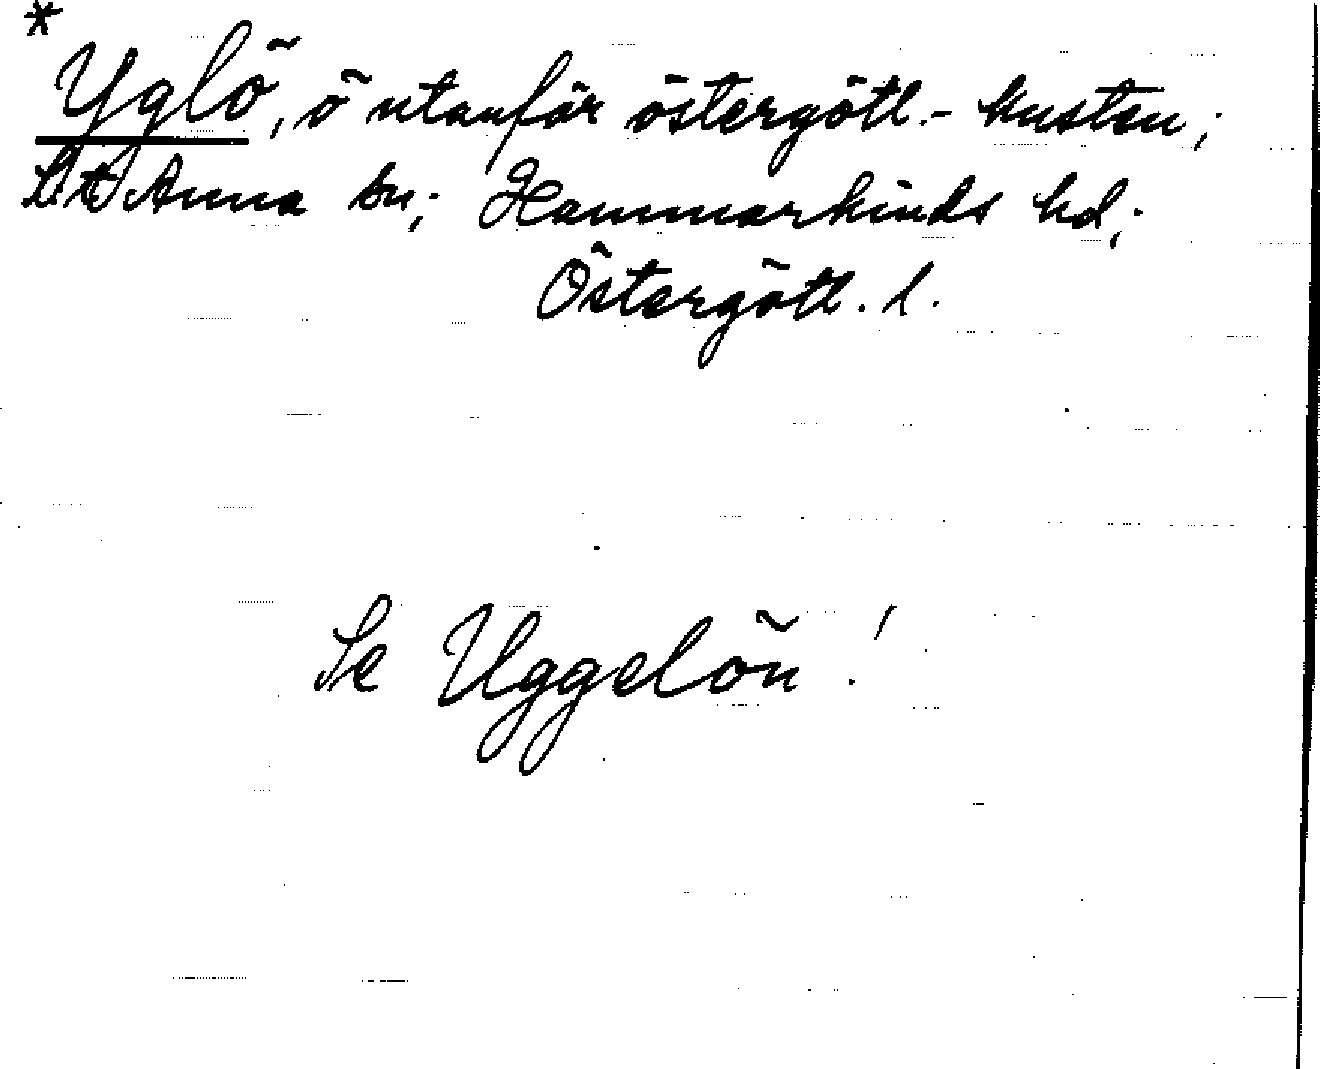 *
Yglö, ö utanför östergötl.- kusten;
St Anna sn; Hammarkinds hd;
Östergötl. l.
Se Uggelön!